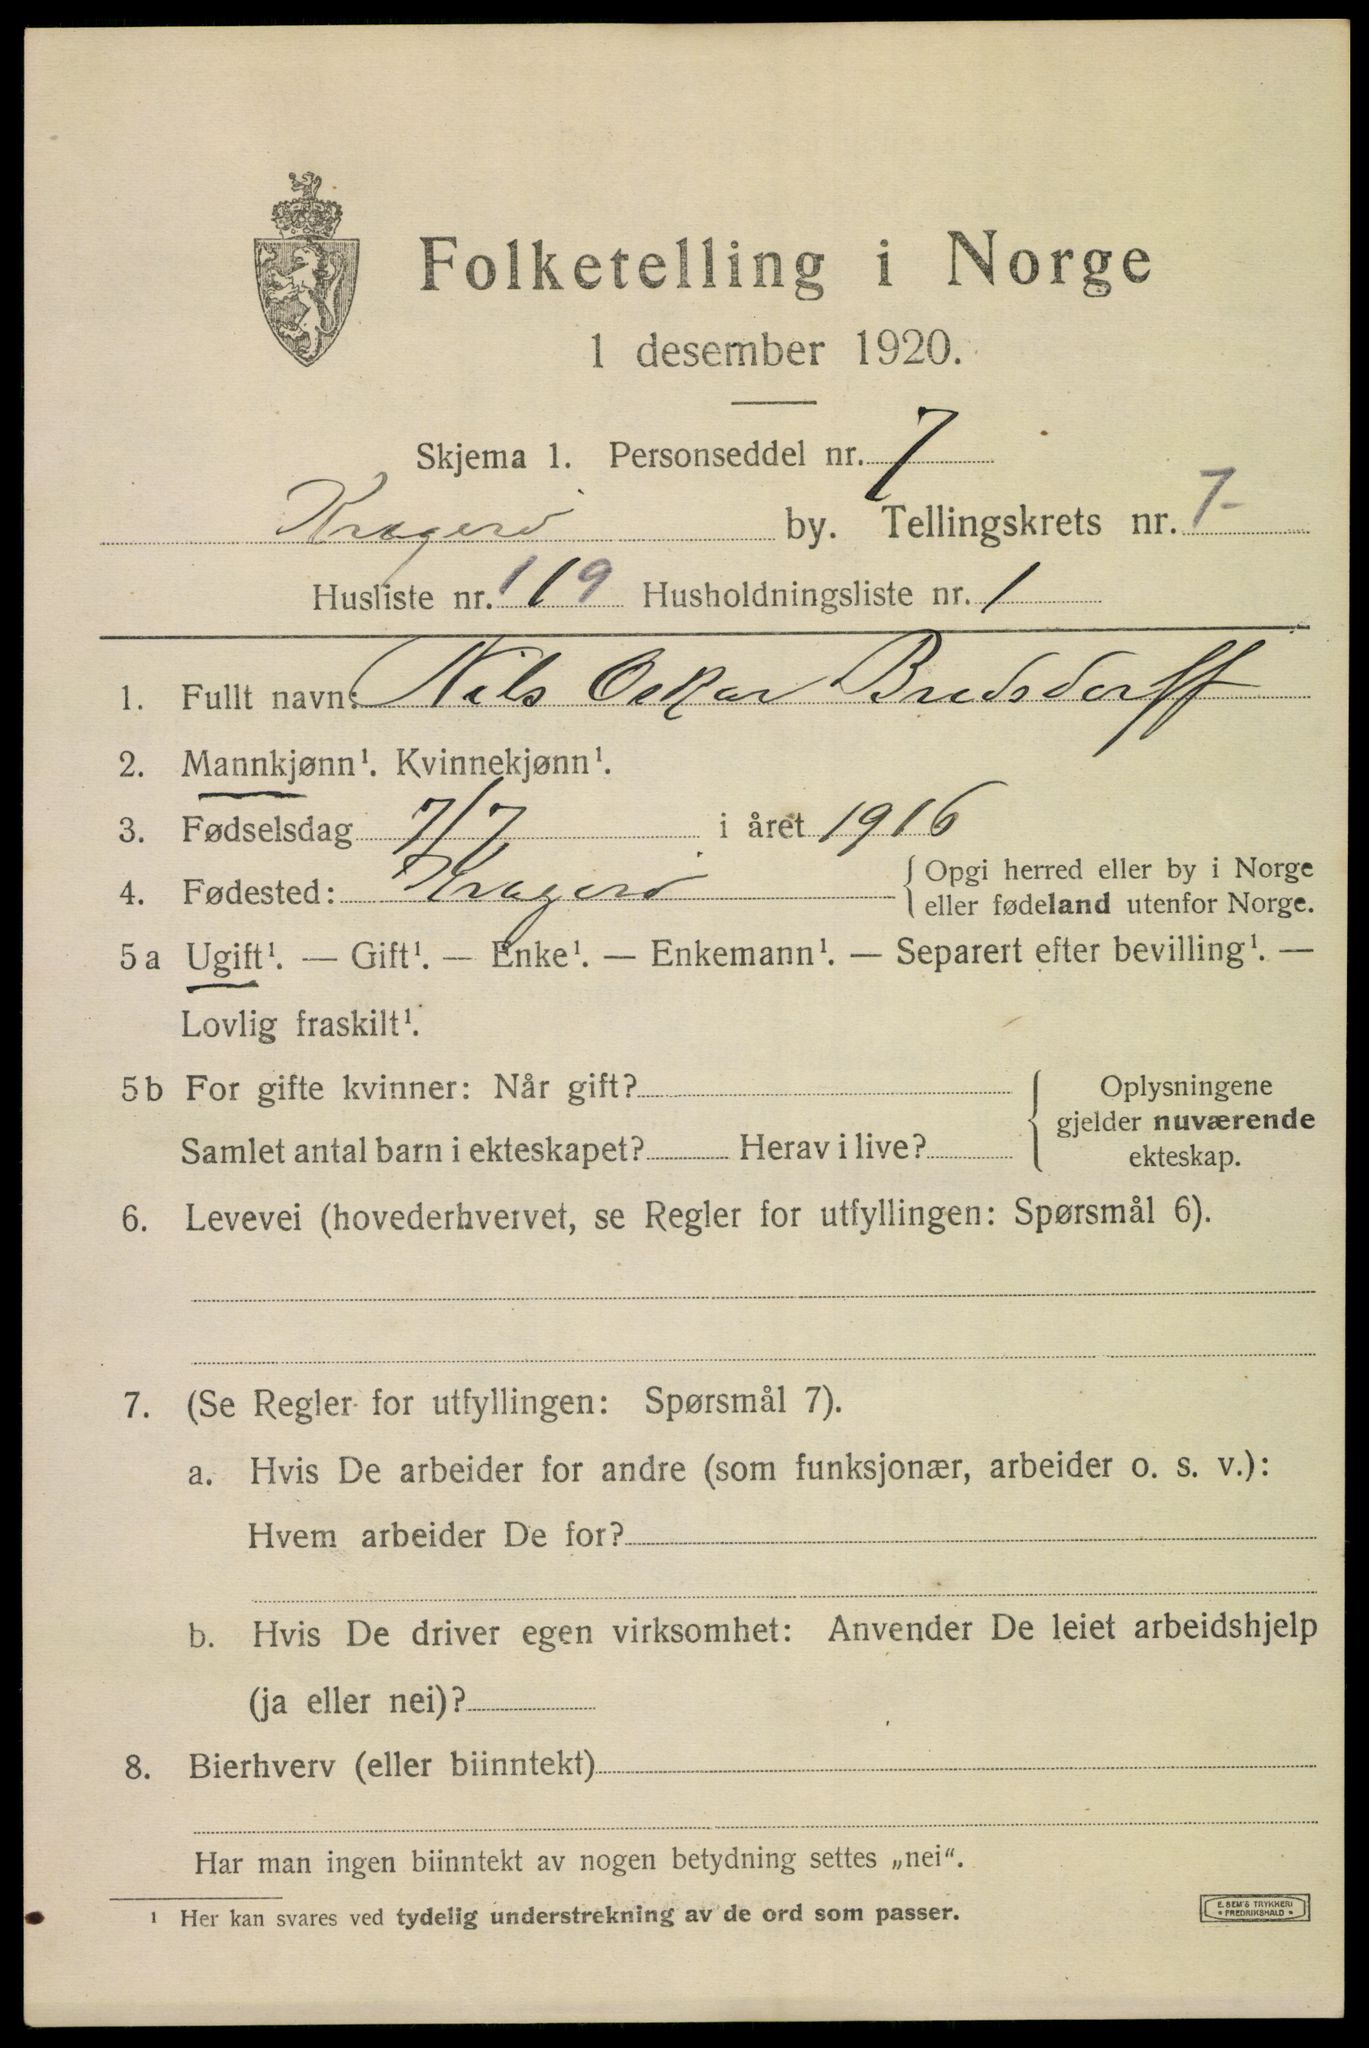 Folketelling i Norge
1 desember 1920.
Skjema 1. Personseddel nr. 7
Kragerø by. Tellingskrets nr. 7-
Husliste nr. 119 Husholdningsliste nr. 1
1. Fullt navn: Nils Oskar Bredsdorff
2. Mannkjønn¹. Kvinnekjønn¹.
3. Fødselsdag 7/7 i året 1916
4. Fødested: Kragerø { Opgi herred eller by i Norge
eller fødeland utenfor Norge.
5a Ugift¹. — Gift¹. — Enke¹. — Enkemann¹. — Separert efter bevilling¹. —
Lovlig fraskilt¹.
5b For gifte kvinner: Når gift? { Oplysningene
gjelder nuværende
Samlet antal barn i ekteskapet? Herav i live? ekteskap.
6. Levevei (hovederhvervet, se Regler for utfyllingen: Spørsmål 6).
7. (Se Regler for utfyllingen: Spørsmål 7).
a. Hvis De arbeider for andre (som funksjonær, arbeider o. s. v.):
Hvem arbeider De for?
b. Hvis De driver egen virksomhet: Anvender De leiet arbeidshjelp
(ja eller nei)?
8. Bierhverv (eller biinntekt)
Har man ingen biinntekt av nogen betydning settes „nei“.
¹ Her kan svares ved tydelig understrekning av de ord som passer.
E. SEM'S TRYKKERI
* FREDRIKSHALD *